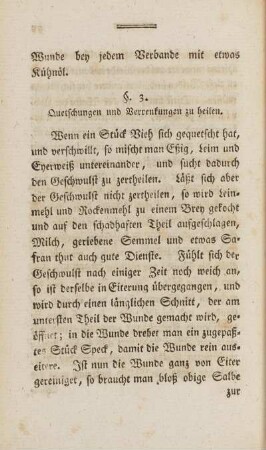 Wunde bey jedem Verbande mit etwas
Kühnöl.
§. 3.
Quetschungen und Verrenkungen zu heilen.
Wenn ein Stück Vieh sich gequetscht hat,
und verschwillt, so mischt man Eßig, Leim und
Eyerweiß untereinander, und sucht dadurch
den Geschwulst zu zertheilen. Läßt sich aber
der Geschwulst nicht zertheilen, so wird Lein-
mehl und Rockenmehl zu einem Brey gekocht
und auf den schadhaften Theil aufgeschlagen,
Milch, geriebene Semmel und etwas Sa-
fran thut auch gute Dienste. Fühlt sich der
Geschwulst nach einiger Zeit noch weich an,
so ist derselbe in Eiterung übergegangen, und
wird durch einen länglichen Schnitt, der am
untersten Theil der Wunde gemacht wird, ge-
öffnet; in die Wunde dreher man ein zugepaß-
tes Stück Speck, damit die Wunde rein aus-
eitere. Ist nun die Wunde ganz von Eiter
gereiniget, so braucht man bloß obige Salbe
zur